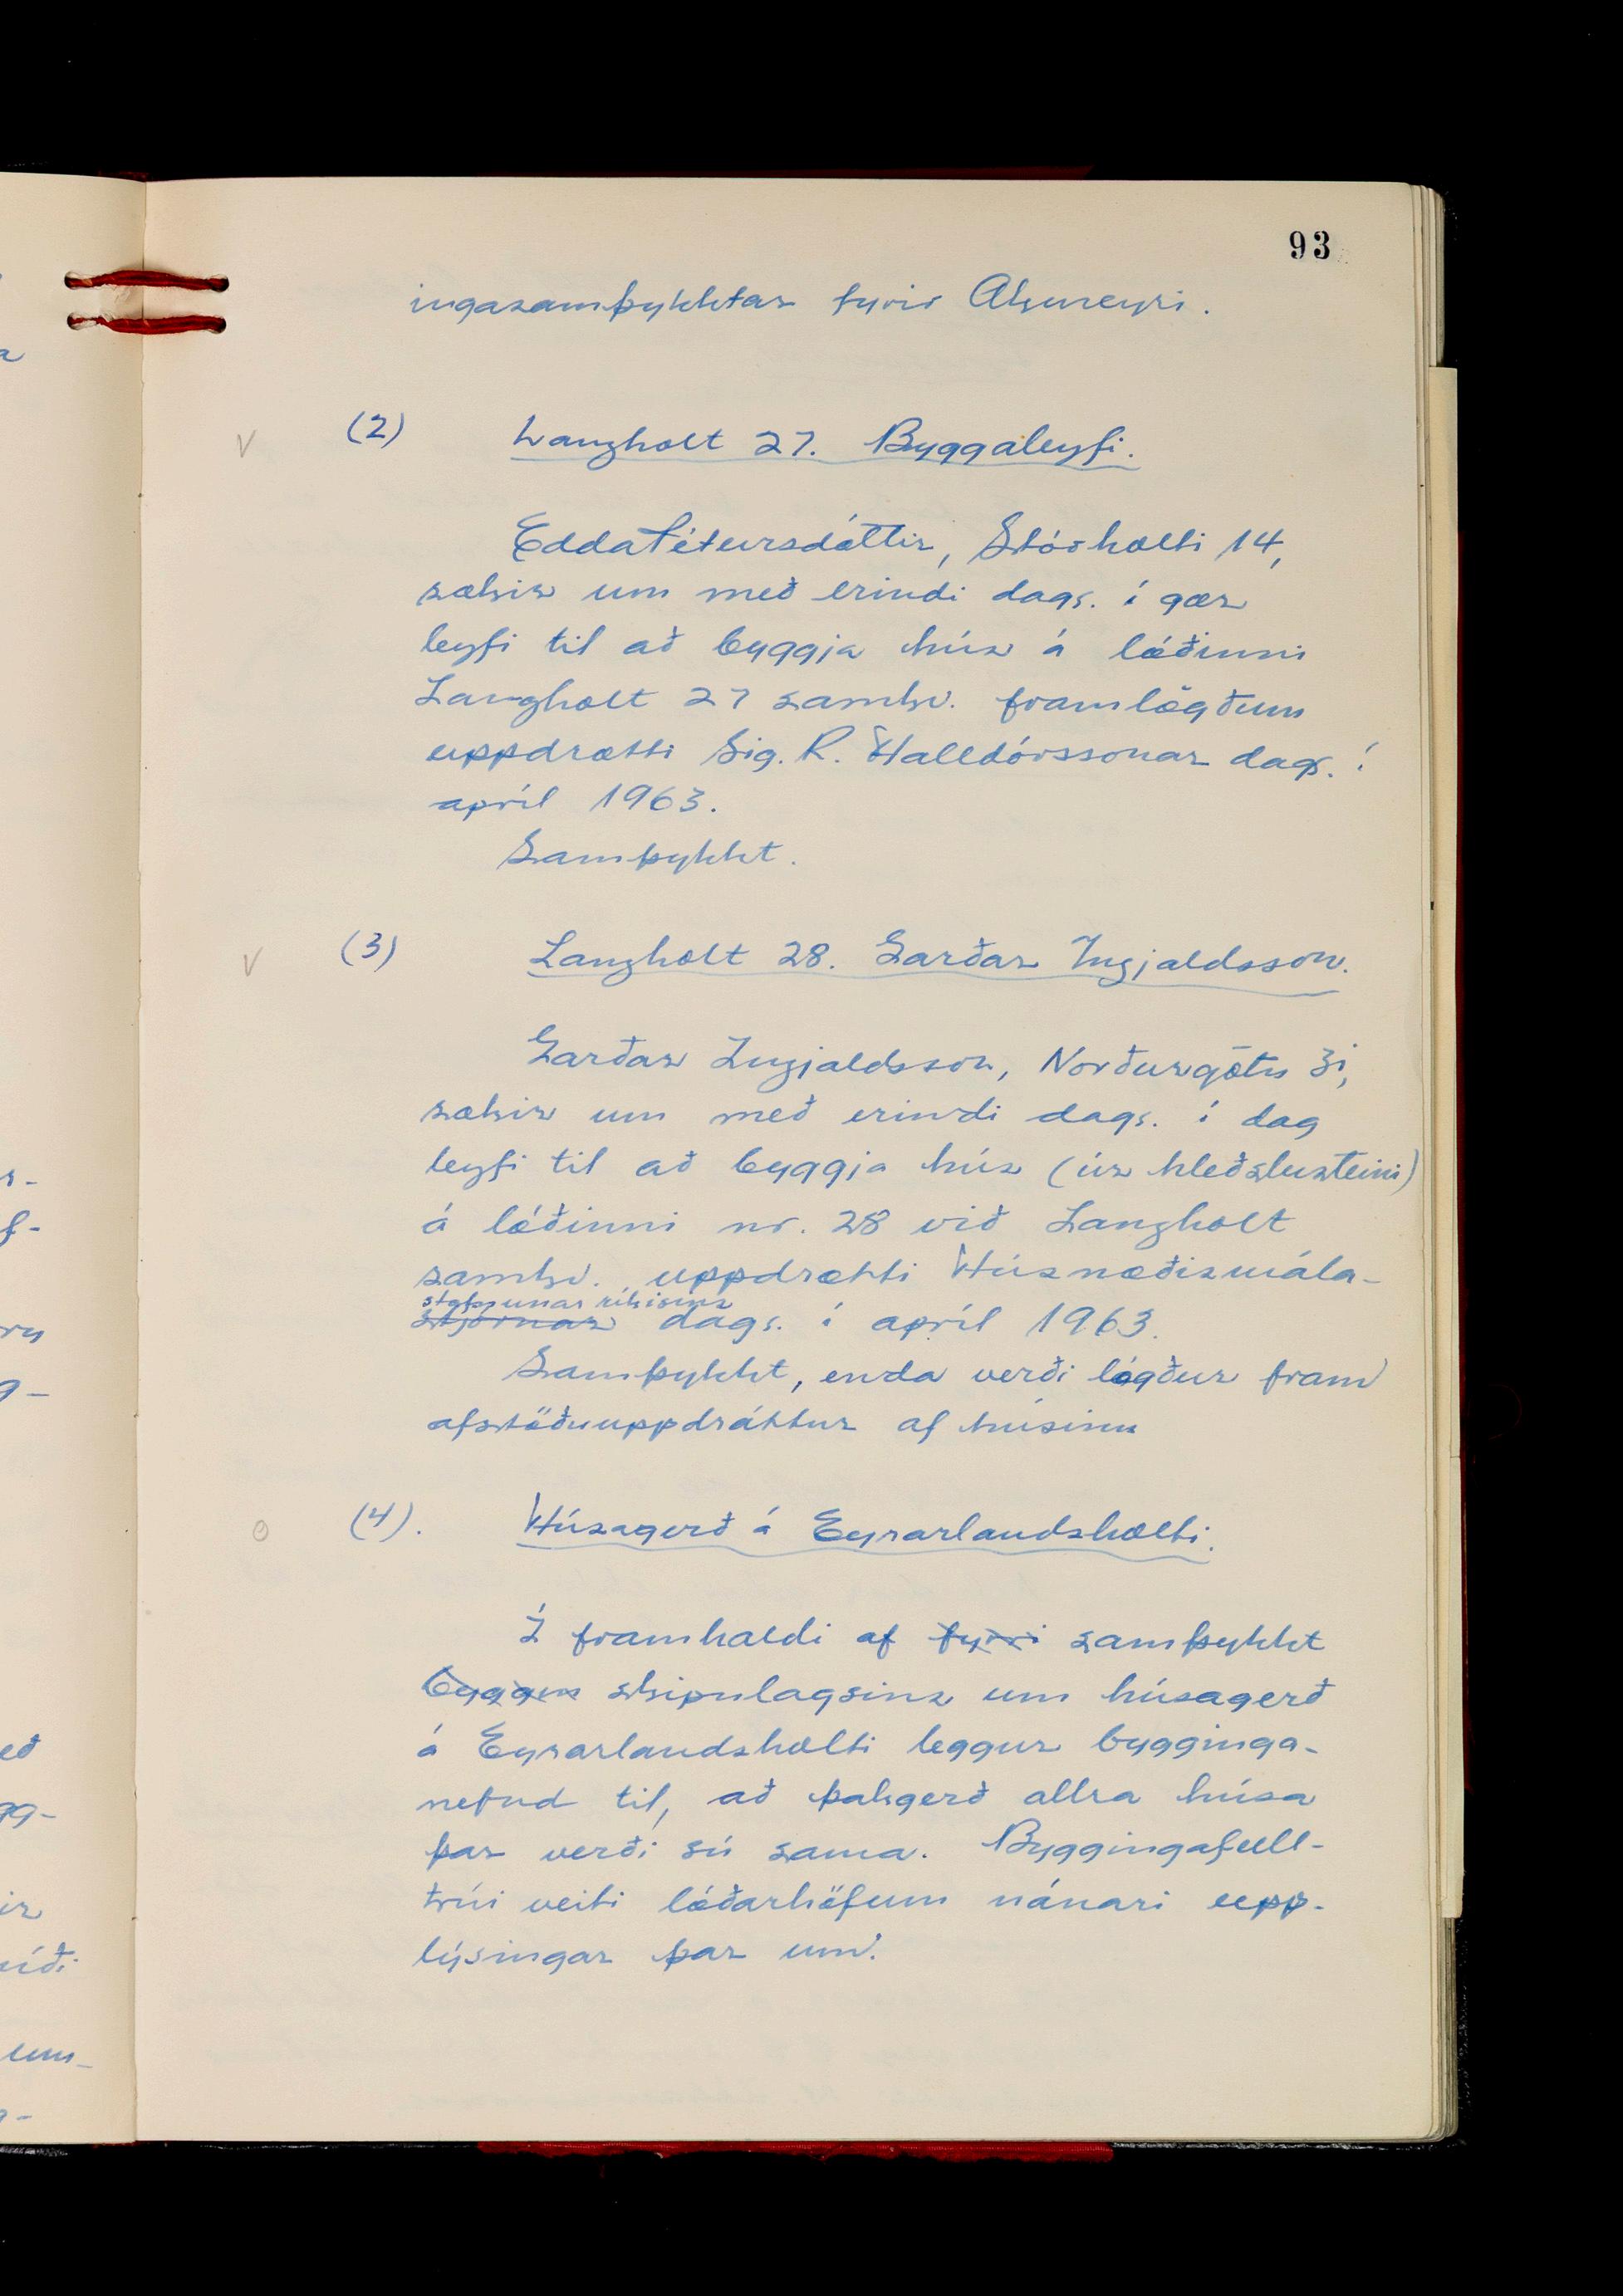 93
ingasamþykktar fyrir Akureyri.
V (2) Langholt 27. Byggaleyfi.
Edda Pétursdóttir, Stórholti 14,
sækir um með erindi dags. í gær
leyfi til að byggja hús á lóðinni
Langholt 27 samkv. framlögðum
uppdrætti Sig. R. Halldórssonar dags. í
apríl 1963.
Samþykkt.
V (3) Langholt 28. Garðar Ingjaldsson.
Garðar Ingjaldsson, Norðurgötu 31,
sækir um með erindi dags. í dag
leyfi til að byggja hús (úr hleðslusteini)
á lóðinni nr. 28 við Langholt
samkv. uppdrætti Húsnæðismála-
stofnunar ríkisins
stjórnar dags. í apríl 1963.
Samþykkt, enda verði lagður fram
afstöðuuppdráttur af húsinu
o (4). Húsagerð á Eyrarlandsholti.
Í framhaldi af fyrri samþykkt
byggen skipulagsins um húsagerð
á Eyrarlandsholti leggur bygginga-
nefnd til, að þakgerð allra húsa
þar verði sú sama. Byggingafull-
trúi veiti lóðarhöfum nánari upp-
lýsingar þar um.